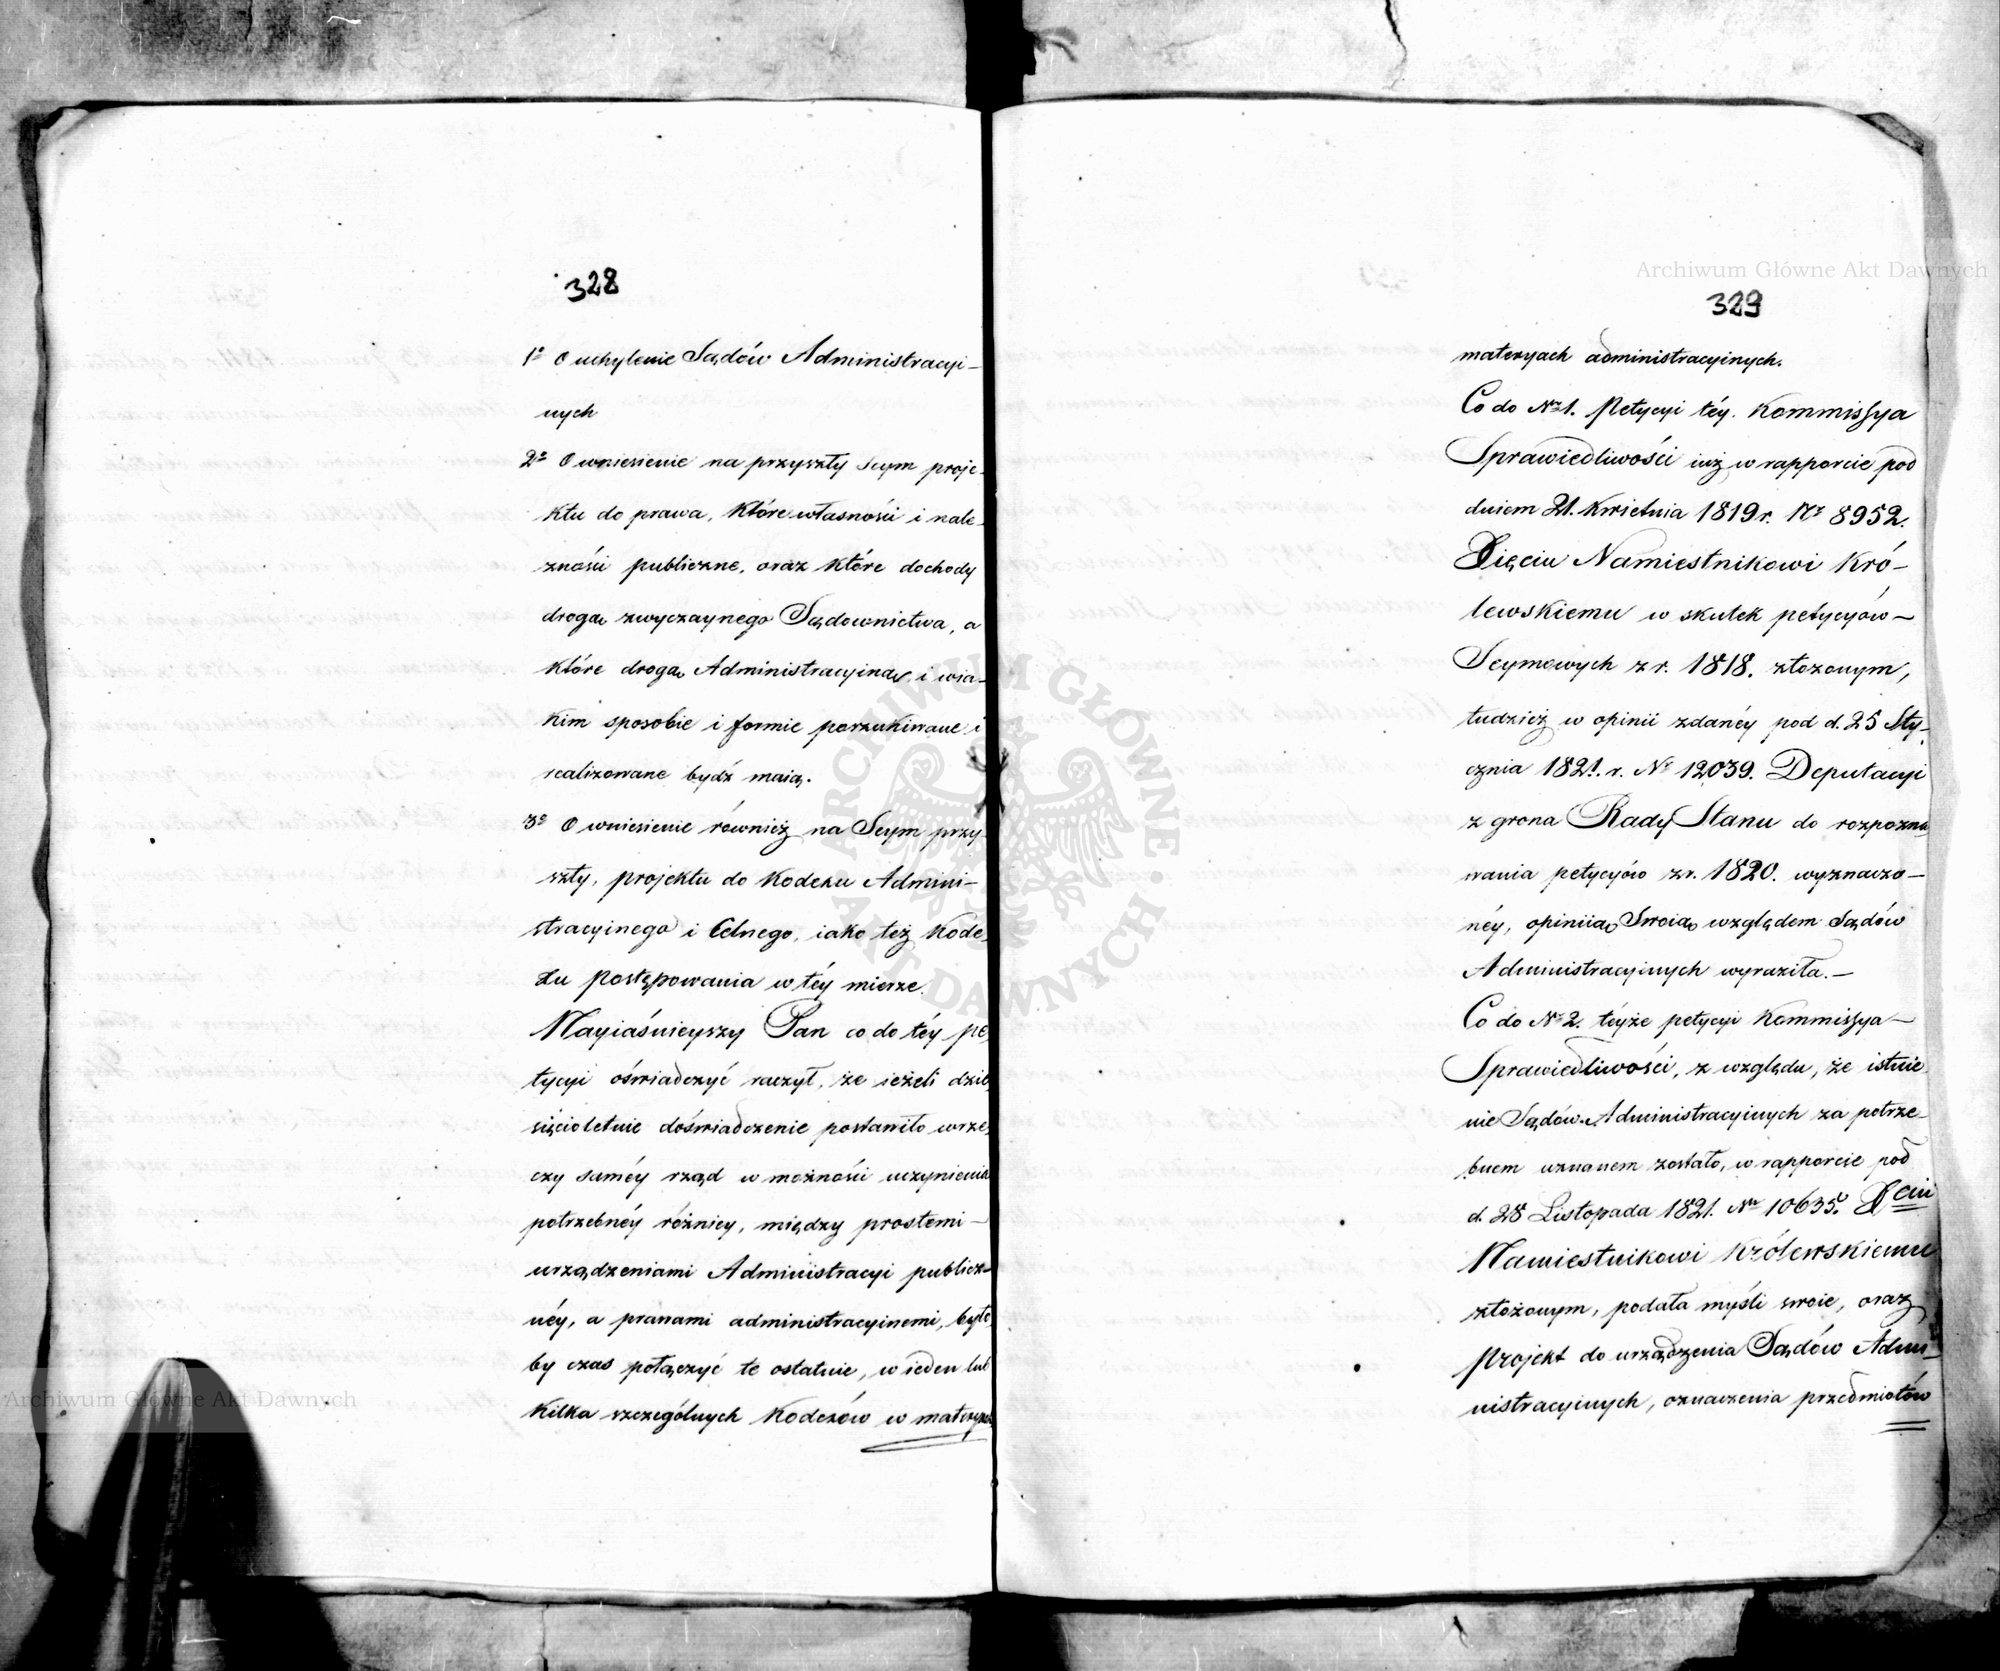 328
1º O uchylenie Sądów Administracyi-
nych
2º O wniesienie na przyszły Seym proje-
ktu do prawa, które własności i nale-
żności publiczne, oraz które dochody
drogą zwyczaynego Sądownictwa, a
które drogą Administracyiną, i w ia-
kim sposobie i formie poszukiwane i
realizowane bydź maią.
3º O wniesienie również na Seym przy-
szły, projektu do Kodexu Admini-
stracyinego i Celnego, iako też Kode-
xu postępowania w téy mierze.
Nayiaśnieyszy Pan co do téy pe-
tycyi oświadczyć raczył, że ieżeli dzie-
sięcioletnie doświadczenie postawiło w rze-
czy saméy rząd w możności uczynienia
potrzebnéy różnicy, między prostemi
urządzeniami Administracyi publicz-
néy, a prawami administracyinemi, było
by czas połączyć te ostatnie, w ieden lub
kilka szczególnych Kodexów w materyach
329
materyach administracyinych.
Co do Nr 1. Petycyi téy. Kommissya
Sprawiedliwości iuż w rapporcie pod
dniem 21. Kwietnia 1819 r. Nr 8952.
Xięciu Namiestnikowi Kró-
lewskiemu w skutek petycyów
Seymowych z r. 1818. złożonym,
tudzież w opinii zdanéy pod d. 25 Sty-
cznia 1821. r. Nr 12039. Deputacyi
z grona Rady Stanu do rozpozna-
wania petycyów z r. 1820. wyznaczo-
néy, opiniią Swoią względem Sądów
Administracyinych wyraziła.—
Co do Nr 2. téyże petycyi Kommissya
Sprawiedliwości, z względu, że istnie-
nie Sądów Administracyinych za potrze-
bnem uznanem zostało, w rapporcie pod
d. 28 Listopada 1821. Nr 10635. Xciu
Namiestnikowi Królewskiemu
złożonym, podała myśli swoie, oraz
Projekt do urządzenia Sądów Admi-
nistracyinych, oznaczenia przedmiotów
Archiwum Główne Akt Dawnych
Archiwum Główne Akt Dawnych
ARCHIWUM GŁÓWNE AKT DAWNYCH